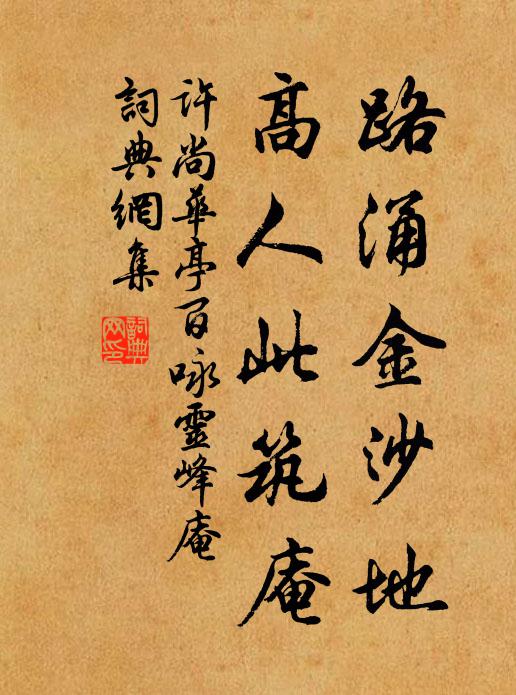 路涌金沙地
高人此筑庵
许尚華亭百咏靈峰庵
詞典網集
詞典网印